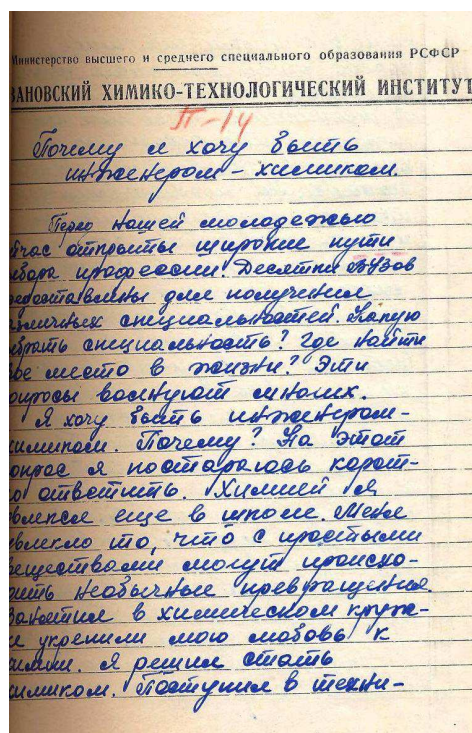 Министерство высшего и среднего специального образования РСФСР
ВАНОВСКИЙ ХИМИКО-ТЕХНОЛОГИЧЕСКИЙ ИНСТИТУТ
П-14
Почему я хочу быть
инженером-химиком.
Перед нашей молодежью
йчас открыты широкие пути
бора профессии. Десятки ВУЗов
едоставлены для получения
зличных специальностей. Какую
брать специальность? Где найти
ое место в жизни? Эти
опросы волнуют многих.
Я хочу быть инженером-
химиком. Почему? На этот
опрос я постараюсь корот-
о ответить. Химией я
влекся еще в школе. Меня
влекло то, что с простыми
еществами могут происхо-
ить необычные превращения.
Занятия в химическом круж-
е укрепили мою любовь к
химии. Я решил стать
химиком. Поступил в техни-